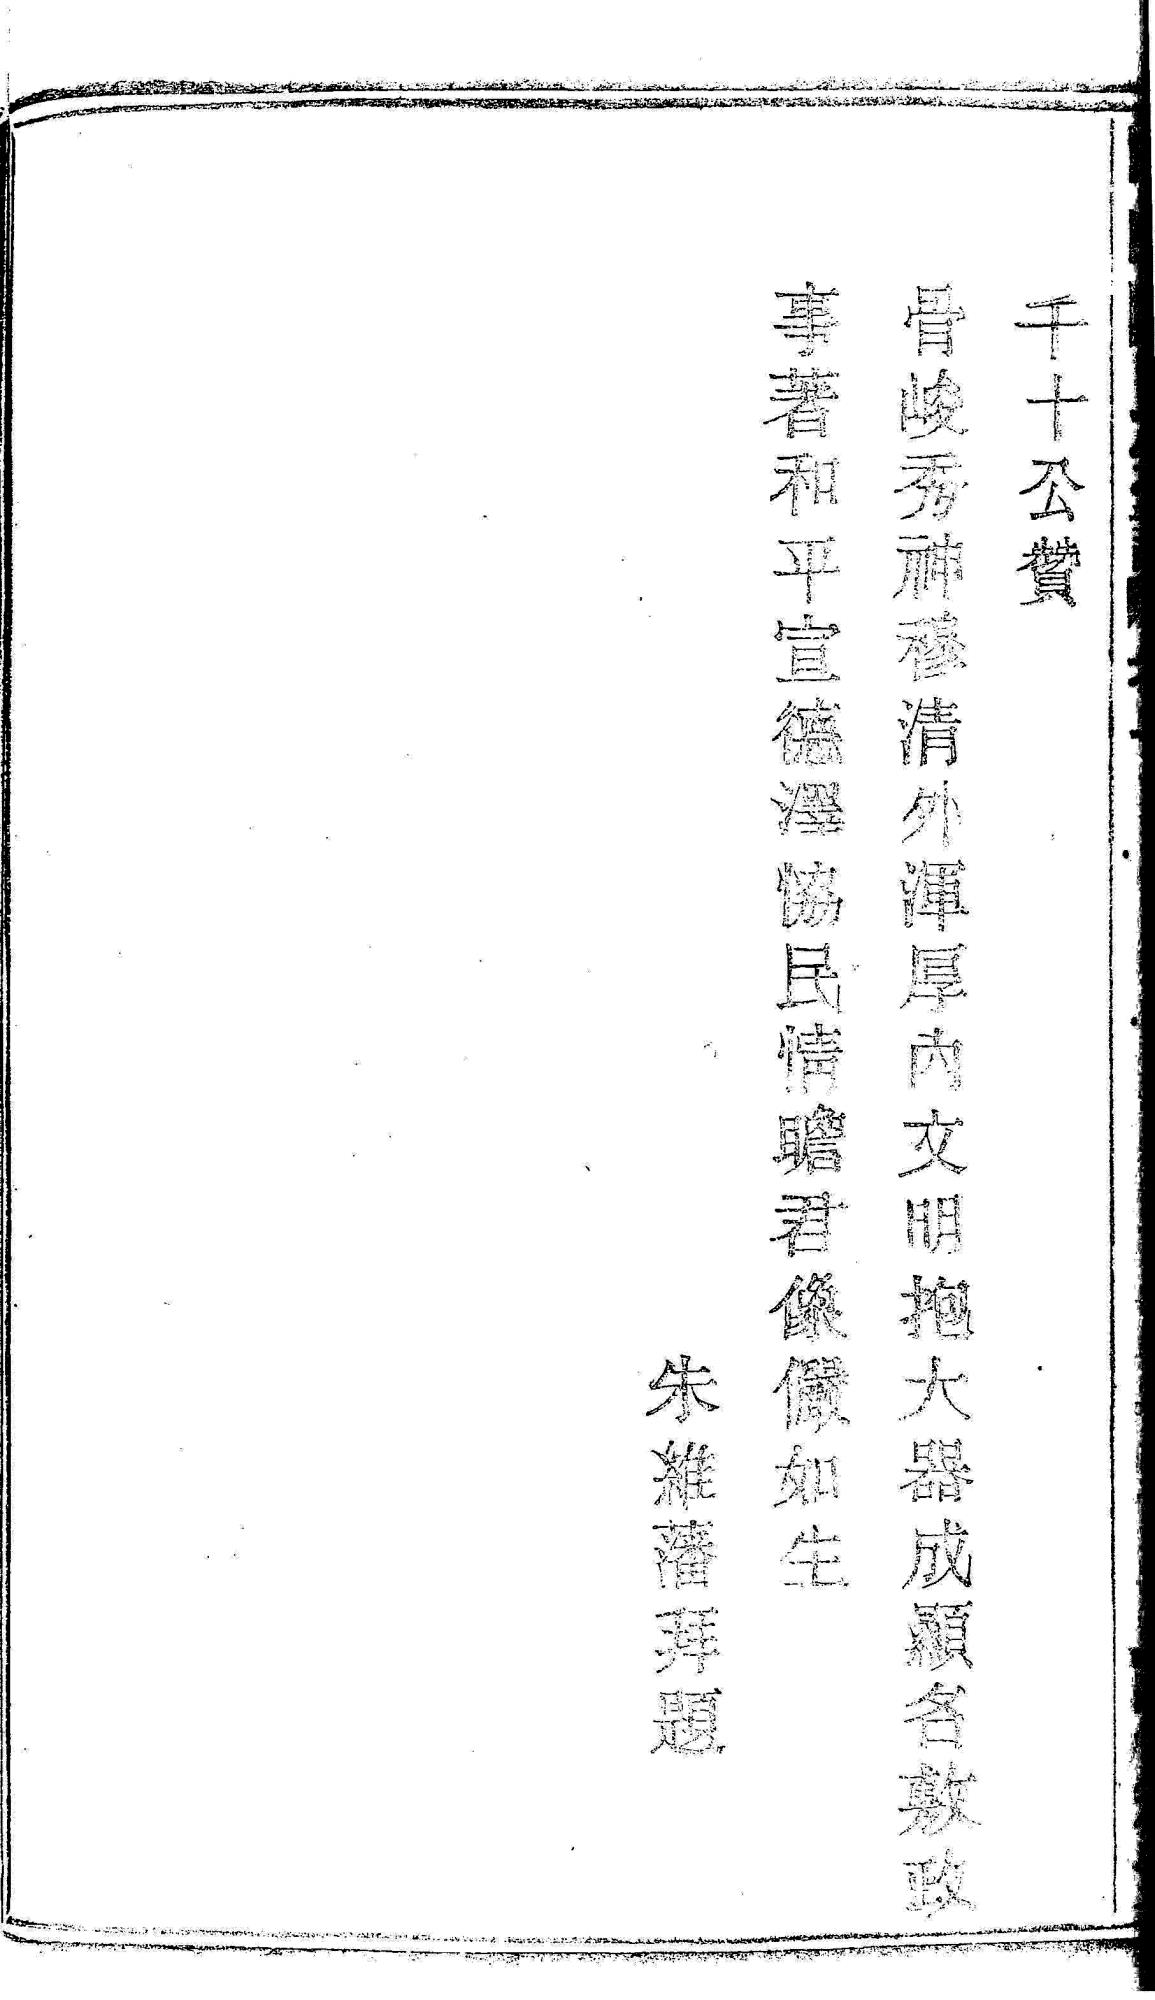 千十公贊
骨峻秀神穆清外渾厚內文明抱大器成顯名敷政
事著和平宣德澤恊民情瞻君像儼如生
朱維藩拜題